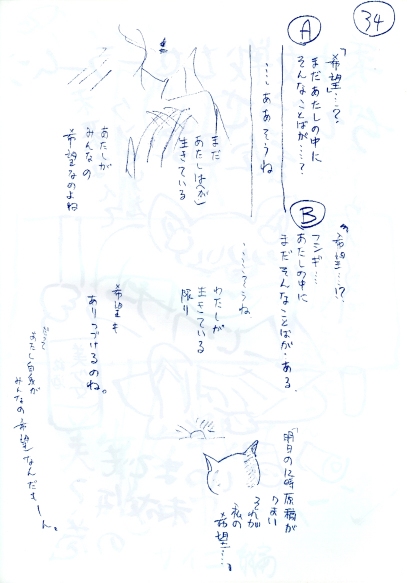 34
A
「希望」…?
まだあたしの中に
そんなことばが…?
……ああそうね
まだ
あたしは(が)
生きている
あたしが
みんなの
希望なのよね
B
"希望…!?
フシギ…
あたしの中に
まだそんなことばが・ある.
……そうね
わたしが
生きている
限り
希望も
ありつづけるのね。
だって
あたし自身が
みんなの希望なんだもーん。
「明日の12時原稿が
それが
私の
希望…」